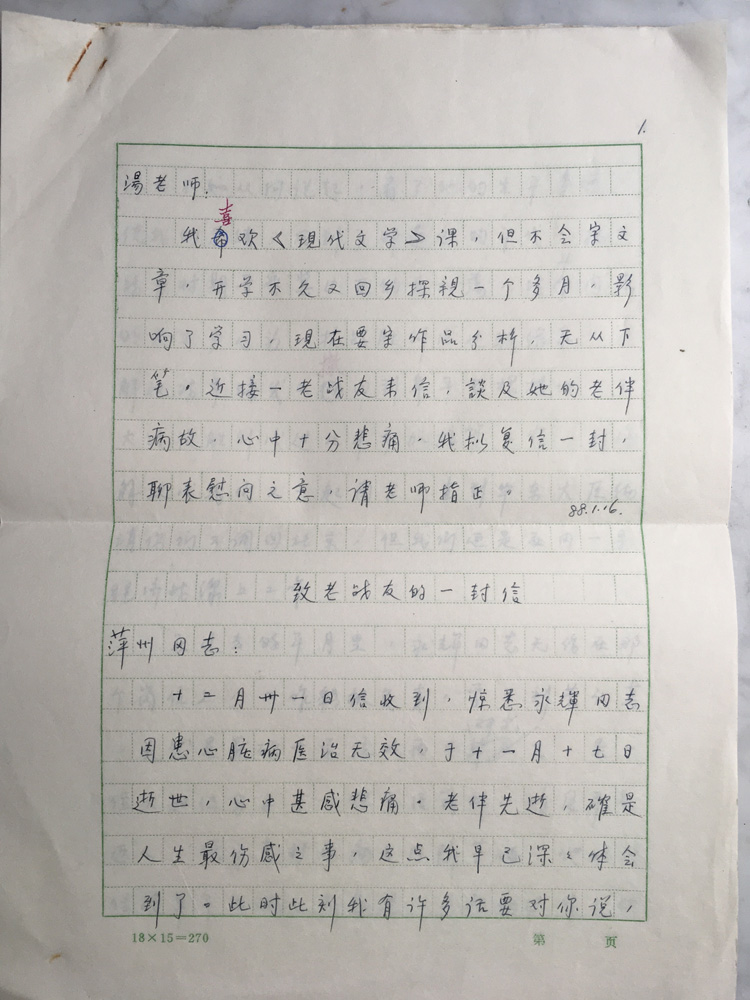 1.
湯老师：
喜
我欢《現代文学》课，但不会写文
章，开学不久又回乡探視一个多月，影
响了学习，現在要写作品分析，无从下
笔。近接一老战友来信，談及她的老伴
病故，心中十分悲痛，我拟复信一封，
聊表慰问之意，请老师指正。
88.1.16.
致老战友的一封信
萍州同志：
十二月卅一日信收到，惊悉永輝同志
因患心脏病医治无效，于十一月十七日
逝世，心中甚感悲痛。老伴先逝，確是
人生最伤感之事，这点我早已深々体会
到了。此时此刻我有许多话要对你说，
18×15=270
第 页